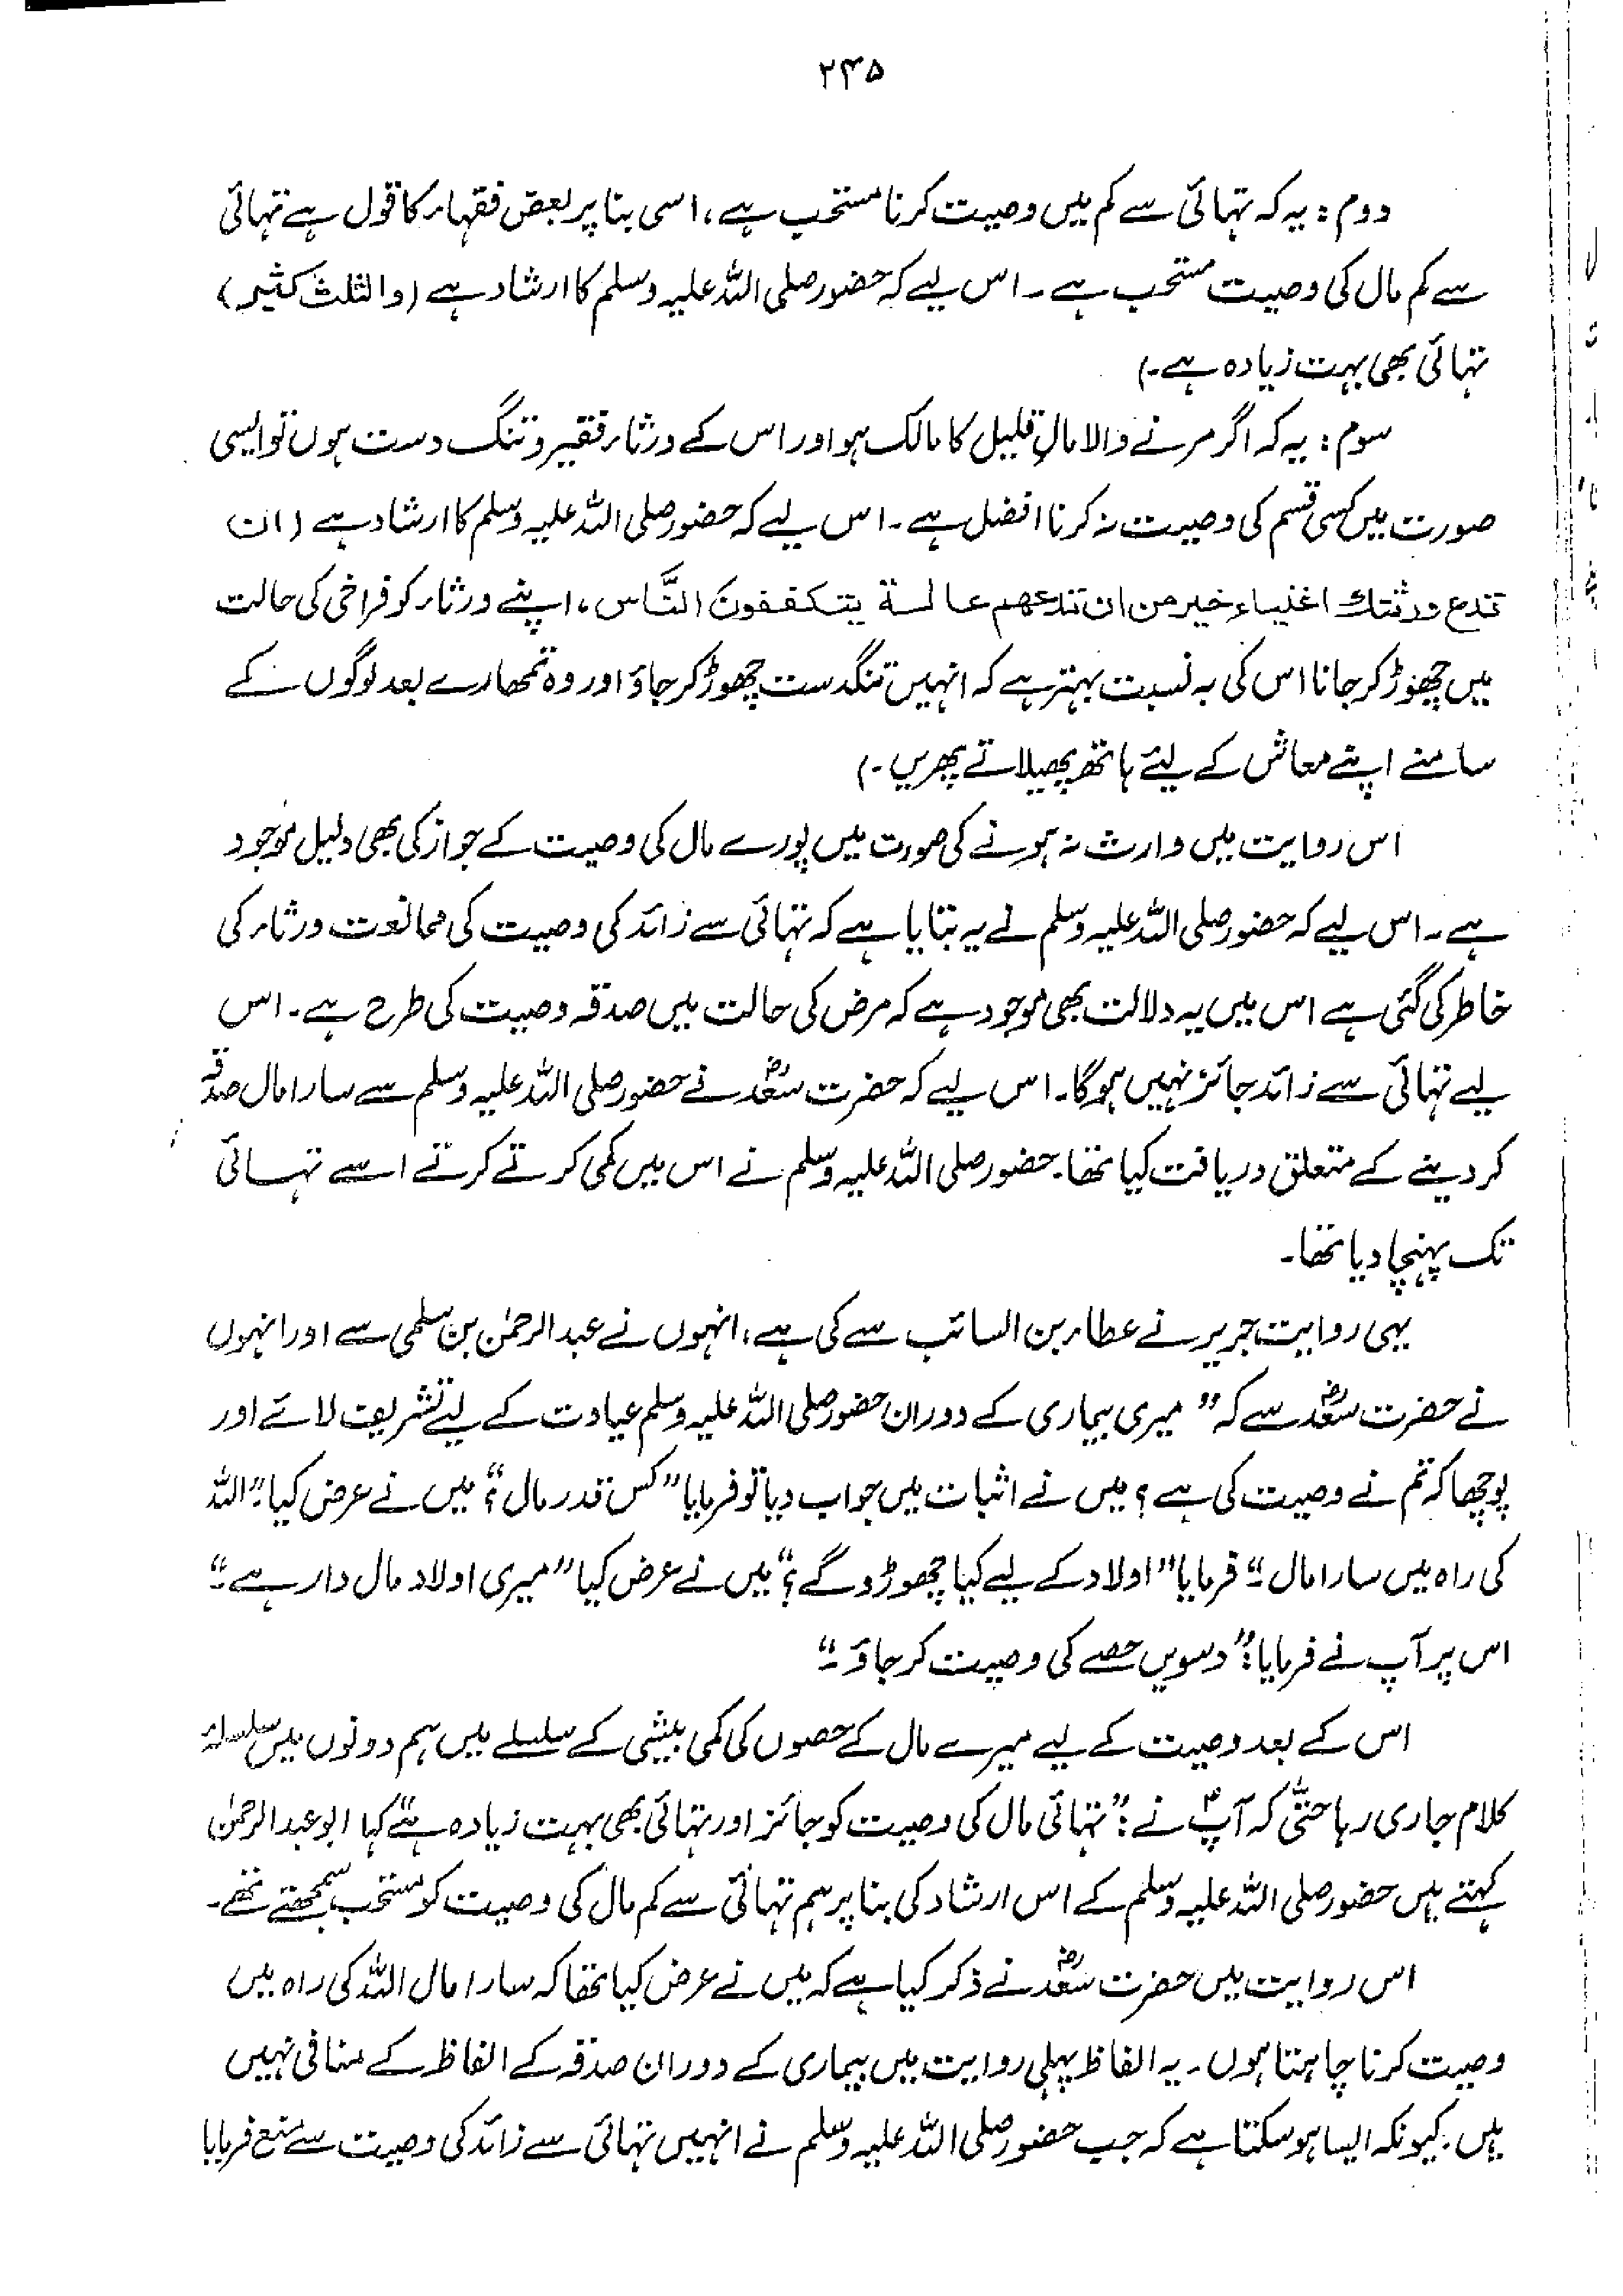 ۲۴۵
دوم: یہ کہ تہائی سے کم میں وصیت کرنا مستحب ہے، اسی بنا پر بعض فقہاء کا قول ہے تہائی
سے کم مال کی وصیت مستحب ہے۔ اس لیے کہ حضور صلی اللہ علیہ وسلم کا ارشاد ہے (والثلث کثیر)
تہائی بھی بہت زیادہ ہے۔)
سوم: یہ کہ اگر مرنے والا مالِ قلیل کا مالک ہو اور اس کے ورثاء فقیر و تنگ دست ہوں تو ایسی
صورت میں کسی قسم کی وصیت نہ کرنا افضل ہے۔ اس لیے کہ حضور صلی اللہ علیہ وسلم کا ارشاد ہے (ان
تدع ورثتك اغنیاء خیر من ان تدعهم عالة یتكففونَ النَّاس، اپنے ورثاء کو فراخی کی حالت
میں چھوڑ کر جانا اس کی بہ نسبت بہتر ہے کہ انہیں تنگدست چھوڑ کر جاؤ اور وہ تمھارے بعد لوگوں کے
سامنے اپنے معاش کے لیئے ہاتھ پھیلاتے پھریں۔)
اس روایت میں وارث نہ ہونے کی صورت میں پورے مال کی وصیت کے جواز کی بھی دلیل موجود
ہے۔ اس لیے کہ حضور صلی اللہ علیہ وسلم نے یہ بتایا ہے کہ تہائی سے زائد کی وصیت کی ممانعت ورثاء کی
خاطر کی گئی ہے اس میں یہ دلالت بھی موجود ہے کہ مرض کی حالت میں صدقہ وصیت کی طرح ہے۔ اس
لیے تہائی سے زائد جائز نہیں ہوگا۔ اس لیے کہ حضرت سعدؓ نے حضور صلی اللہ علیہ وسلم سے سارا مال صدقہ
کر دینے کے متعلق دریافت کیا تھا۔ حضور صلی اللہ علیہ وسلم نے اس میں کمی کرتے کرتے اسے تہائی
تک پہنچا دیا تھا۔
یہی روایت جریر نے عطاء بن السائب سے کی ہے، انہوں نے عبدالرحمٰن بن سلمی سے اور انہوں
نے حضرت سعدؓ سے کہ ”میری بیماری کے دوران حضور صلی اللہ علیہ وسلم عیادت کے لیے تشریف لائے اور
پوچھا کہ تم نے وصیت کی ہے؟ میں نے اثبات میں جواب دیا تو فرمایا ”کس قدر مال؟“ میں نے عرض کیا: ”اللہ
کی راہ میں سارا مال۔“ فرمایا ”اولاد کے لیے کیا چھوڑو گے؟“ میں نے عرض کیا ”میری اولاد مال دار ہے۔“
اس پر آپ نے فرمایا: ”دسویں حصے کی وصیت کر جاؤ۔“
اس کے بعد وصیت کے لیے میرے مال کے حصوں کی کمی بیشی کے سلسلے میں ہم دونوں میں سلسلۂ
کلام جاری رہا حتّٰی کہ آپؐ نے: ”تہائی مال کی وصیت کو جائز اور تہائی بھی بہت زیادہ ہے“ کہا ابو عبدالرحمٰن
کہتے ہیں حضور صلی اللہ علیہ وسلم کے اس ارشاد کی بنا پر ہم تہائی سے کم مال کی وصیت کو مستحب سمجھتے تھے۔
اس روایت میں حضرت سعدؓ نے ذکر کیا ہے کہ میں نے عرض کیا تھا کہ سارا مال اللہ کی راہ میں
وصیت کرنا چاہتا ہوں۔ یہ الفاظ پہلی روایت میں بیماری کے دوران صدقہ کے الفاظ کے منافی نہیں
ہیں۔ کیونکہ ایسا ہو سکتا ہے کہ جب حضور صلی اللہ علیہ وسلم نے انہیں تہائی سے زائد کی وصیت سے منع فرمایا